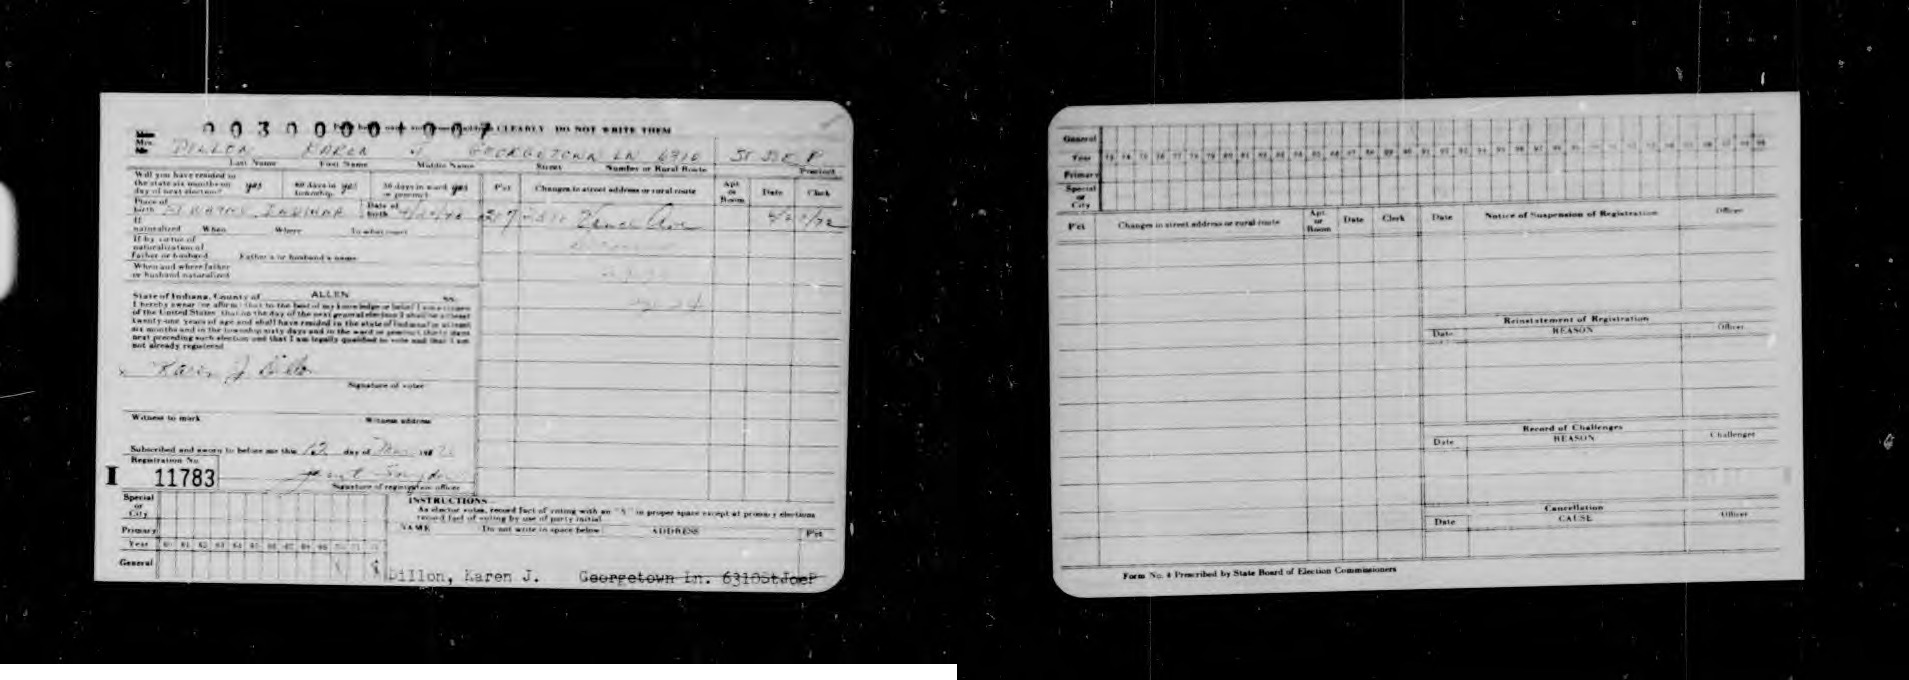 0030000+007
CLEARLY DO NOT WRITE THEM
Mrs.
DILLON KAREN J GEORGETOWN LN 6310 ST JOE P
Last Name First Name Middle Name Street Number or Rural Route Precinct
Will you have resided in
the state six months on yes 60 days in yes 30 days in ward yes
day of next election? township or precinct
Pct Changes in street address or rural route Apt. or Room Date Clerk
Place of birth FT WAYNE INDIANA Date of birth
Vance Ave
If
naturalized When Where To what court
If by virtue of
naturalization of
Father or husband Father's or husband's name
When and where father
or husband naturalized
State of Indiana, County of ALLEN ss.
I hereby swear (or affirm) that to the best of my knowledge or belief I am a citizen
of the United States, that on the day of the next general election I shall be at least
twenty-one years of age and shall have resided in the state of Indiana for at least
six months and in the township sixty days and in the ward or precinct thirty days
next preceding such election and that I am legally qualified to vote and that I am
not already registered
x Karen J Dillon
Signature of voter
Witness to mark Witness address
Subscribed and sworn to before me this day of 19
Registration No.
I 11783
Signature of registration officer
Special
or
City
Primary
Year 60 61 62 63 64 65 66 67 68 69 70 71 72
General
INSTRUCTIONS
As elector votes, record fact of voting with an "X" in proper space except at primary elections
record fact of voting by use of party initial
NAME Do not write in space below ADDRESS Pct
Dillon, Karen J. Georgetown Ln. 6310StJoeP
General
Year 73 74 75 76 77 78 79 80 81 82 83 84 85 86 87 88 89 90 91 92 93 94 95 96 97 98 99
Primary
Special
or
City
Pct Changes in street address or rural route Apt. or Room Date Clerk
Date Notice of Suspension of Registration Officer
Reinstatement of Registration
Date REASON Officer
Record of Challenges
Date REASON Challenger
Cancellation
Date CAUSE Officer
Form No. 4 Prescribed by State Board of Election Commissioners